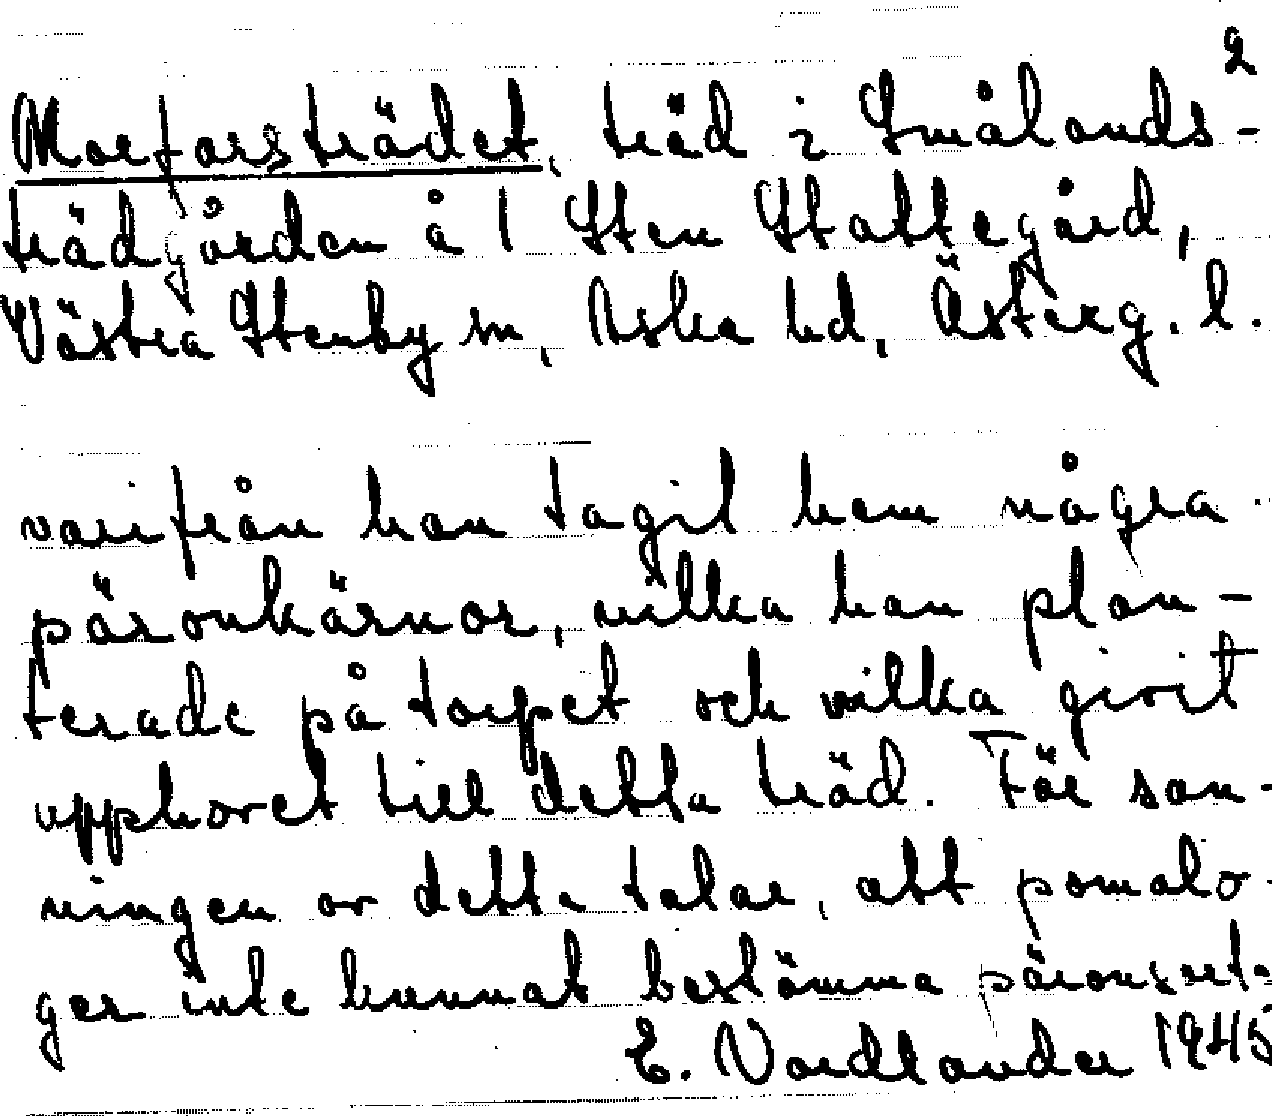 2
Morforsträdet, träd i Smålands-
trädgården å 1 Sten Stattegård,
Västra Stenby sn, Aska hd, Österg. l.
varifrån han tagit hem några
päronkärnor, vilka han plan-
terade på torpet och vilka givit
upphovet till detta träd. För san-
ningen av detta talar, att pomolo-
ger inte kunnat bestämma päronsort.
E. Nordlander 1945